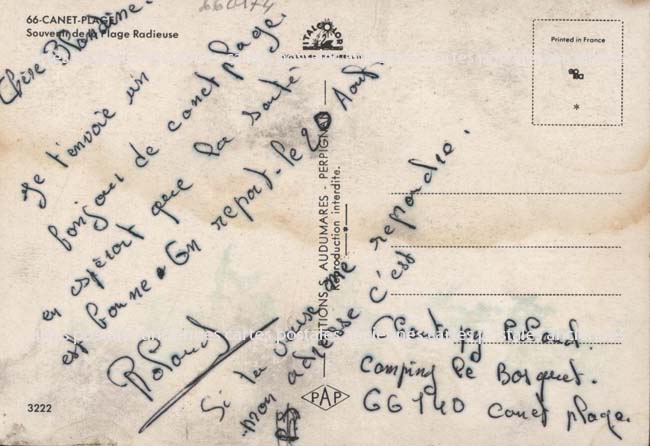 66-CANET-PLAGE
Souvenir de la Plage Radieuse
660174
ITALCOLOR
Printed in France
*
Chère Blandine.
Je t'envoie un
bonjour de canet plage.
en espérant que la santé
est bonne. On repart. le 20 Aout
Roland
Si tu veux me repondre.
mon adresse c'est
Roland.
Camping le Bosquet.
66140 canet plage.
EDITIONS S. AUDUMARES - PERPIGNAN
Reproduction interdite.
PAP
3222